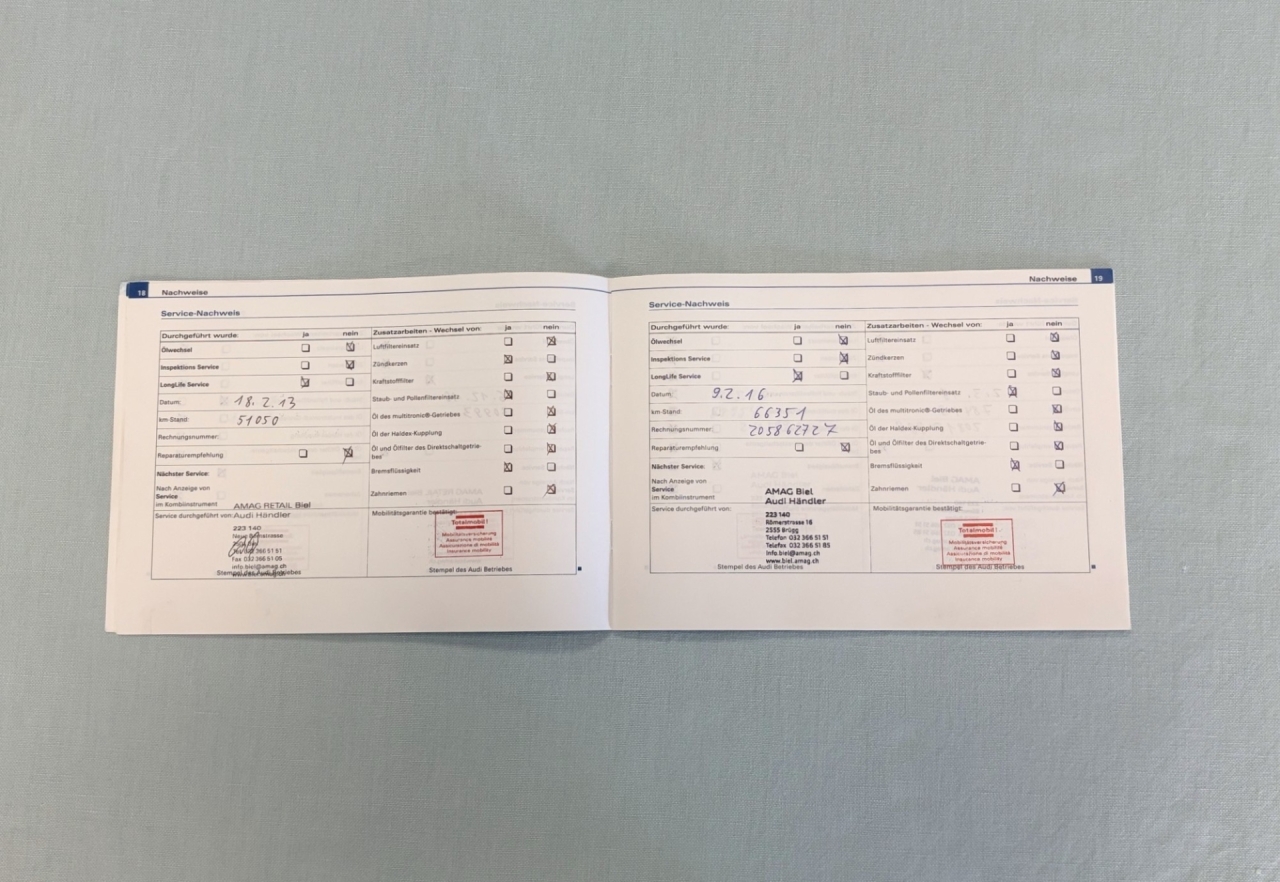 18 Nachweise
Service-Nachweis
Durchgeführt wurde: ja nein
Ölwechsel
Inspektions Service
LongLife Service
Datum: 18.2.13
km-Stand: 51050
Rechnungsnummer:
Reparaturempfehlung
Nächster Service:
Nach Anzeige von
Service
im Kombiinstrument
Service durchgeführt von:
AMAG RETAIL Biel
Audi Händler
223 140
366 51 51
Fax 032 366 51 05
info.biel@amag.ch
Stempel des Audi Betriebes
Zusatzarbeiten - Wechsel von: ja nein
Luftfiltereinsatz
Zündkerzen
Kraftstofffilter
Staub- und Pollenfiltereinsatz
Öl des multitronic®-Getriebes
Öl der Haldex-Kupplung
Öl und Ölfilter des Direktschaltgetrie-
bes
Bremsflüssigkeit
Zahnriemen
Mobilitätsgarantie bestätigt:
Totalmobil!
Mobilitätsversicherung
Assurance mobilité
Assicurazione di mobilità
Insurance mobility
Stempel des Audi Betriebes
Nachweise 19
Service-Nachweis
Durchgeführt wurde: ja nein
Ölwechsel
Inspektions Service
LongLife Service
Datum: 9.2.16
km-Stand: 66351
Rechnungsnummer: 205862727
Reparaturempfehlung
Nächster Service:
Nach Anzeige von
Service
im Kombiinstrument
Service durchgeführt von:
AMAG Biel
Audi Händler
223 140
Römerstrasse 16
2555 Brügg
Telefon 032 366 51 51
Telefax 032 366 51 05
info.biel@amag.ch
www.biel.amag.ch
Stempel des Audi Betriebes
Zusatzarbeiten - Wechsel von: ja nein
Luftfiltereinsatz
Zündkerzen
Kraftstofffilter
Staub- und Pollenfiltereinsatz
Öl des multitronic®-Getriebes
Öl der Haldex-Kupplung
Öl und Ölfilter des Direktschaltgetrie-
bes
Bremsflüssigkeit
Zahnriemen
Mobilitätsgarantie bestätigt:
Totalmobil!
Mobilitätsversicherung
Assurance mobilité
Assicurazione di mobilità
Insurance mobility
Stempel des Audi Betriebes